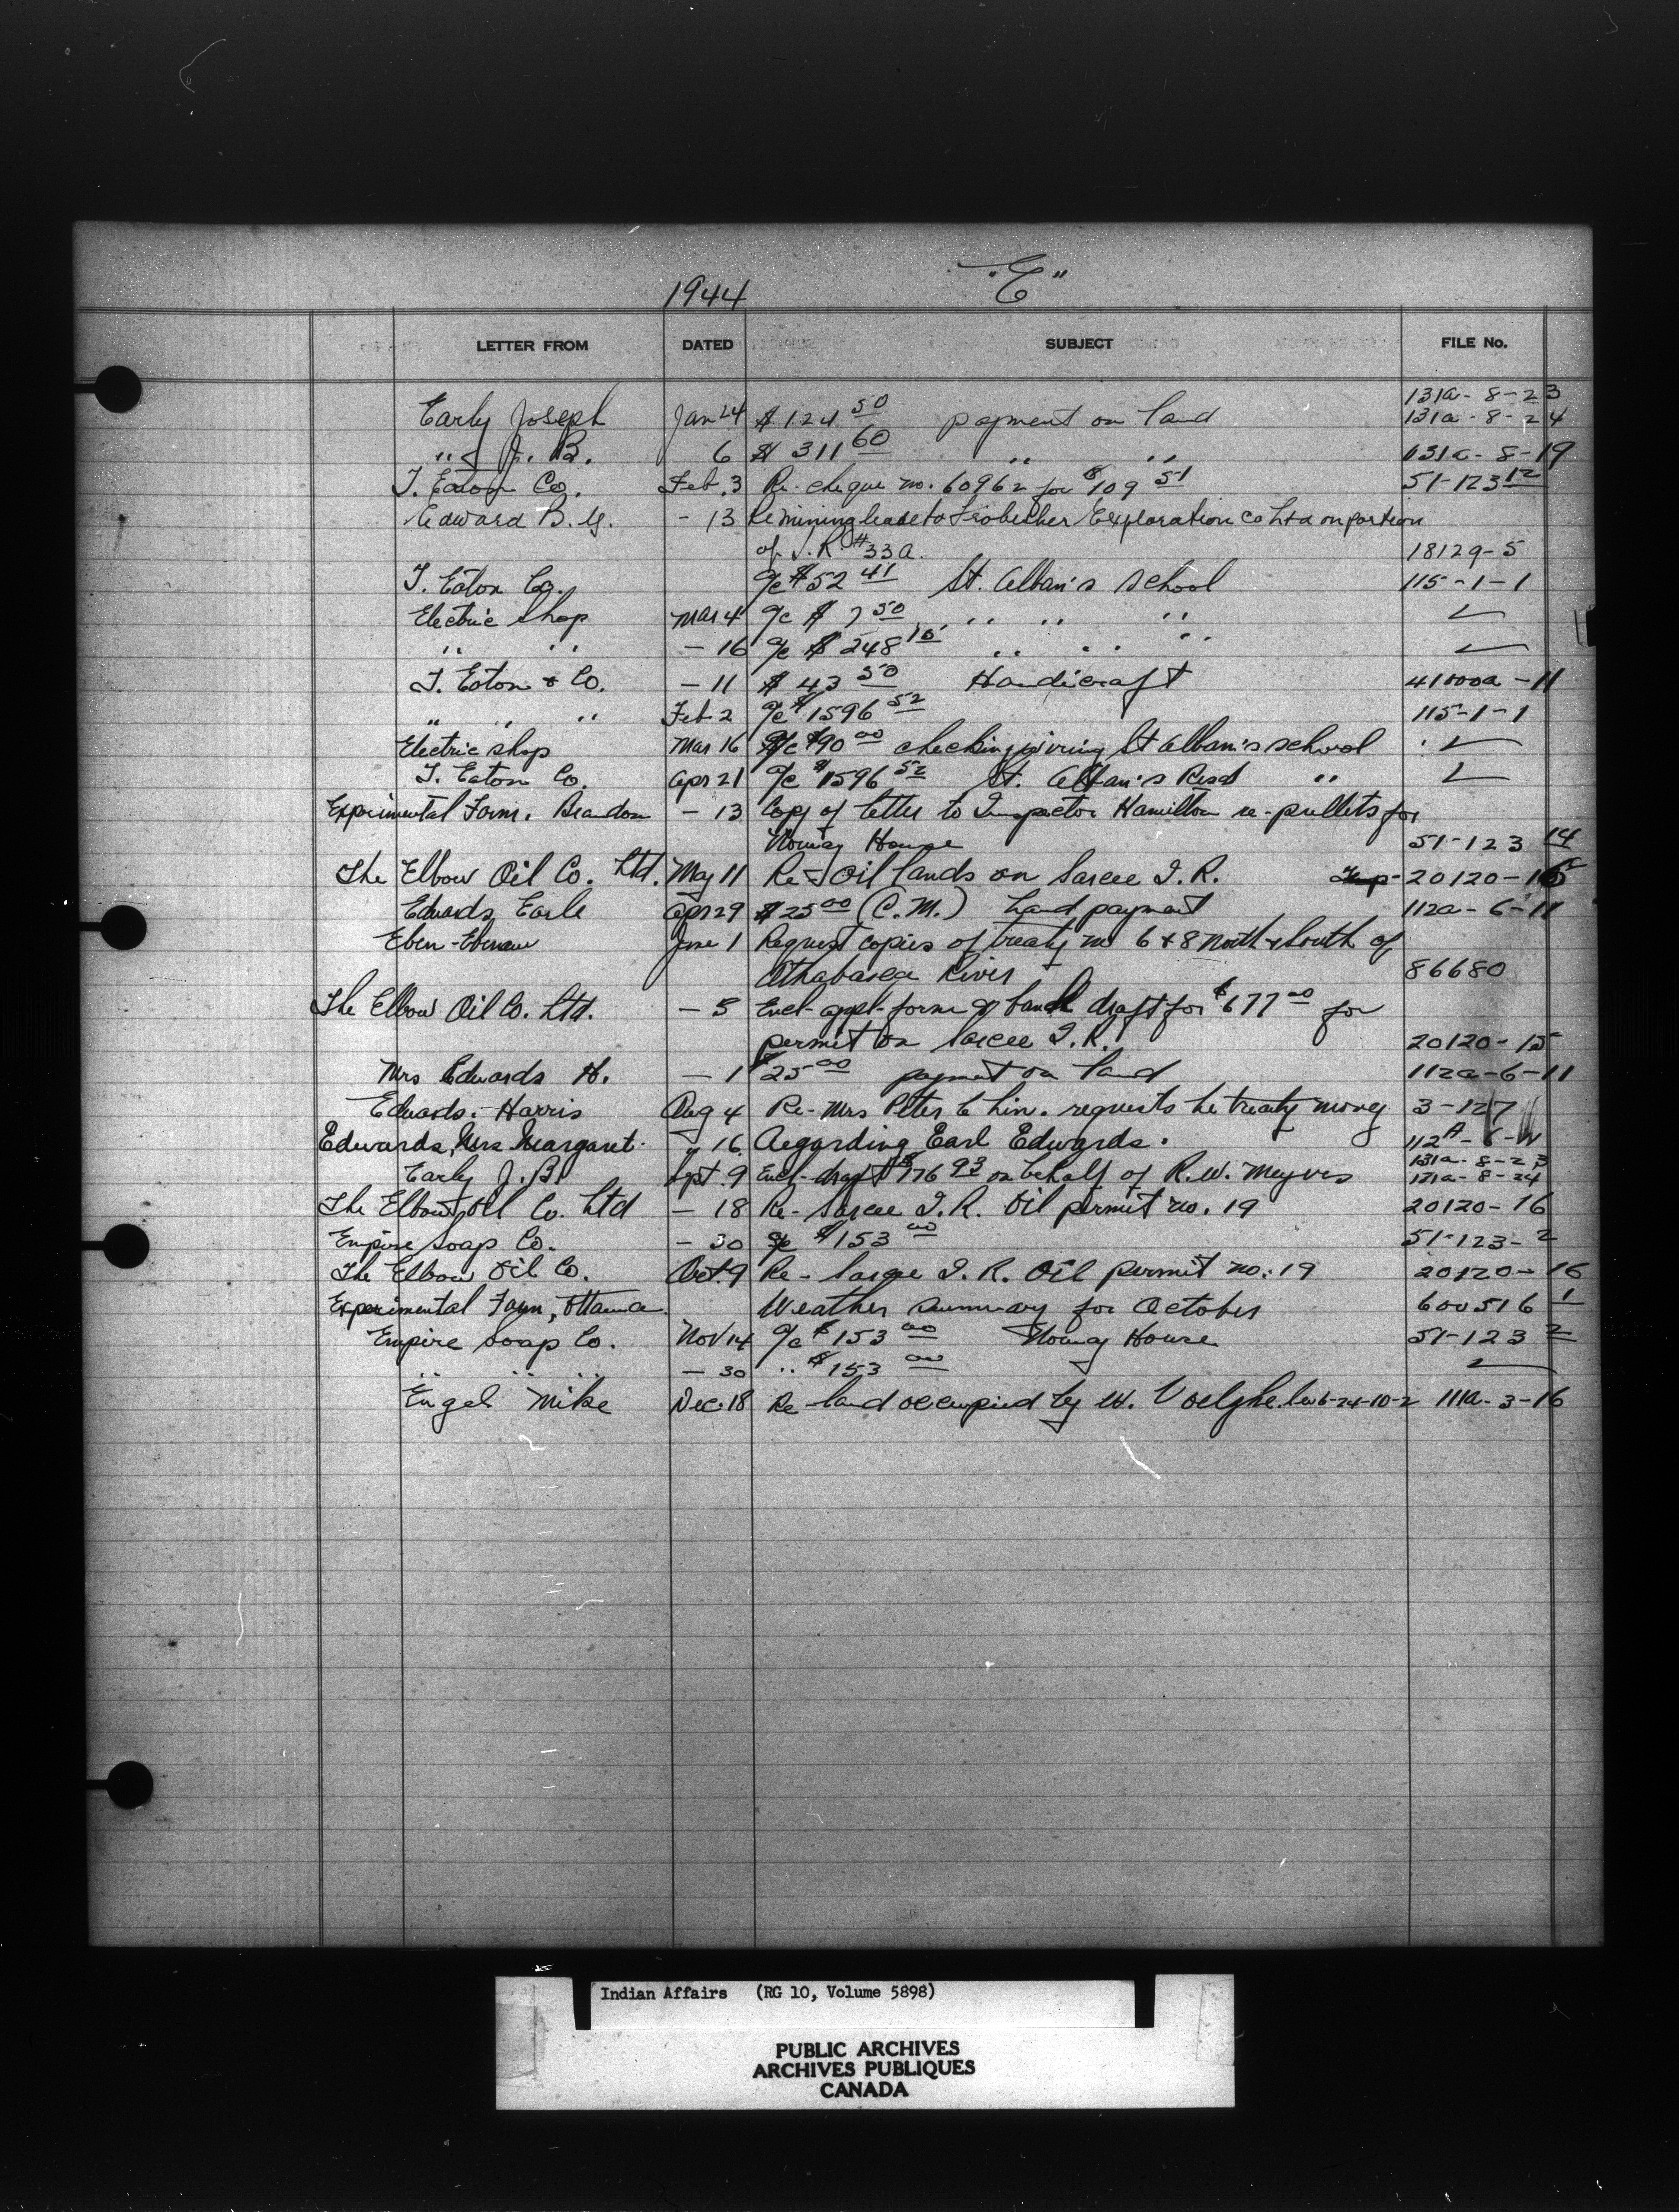 1944 "E"
LETTER FROM DATED SUBJECT FILE No.
131a - 8 - 23
Early Joseph Jan 24 $124 50 payment on land 131a - 8 - 24
" J. B. 6 $311 60 " " 131a - 8 - 19
T. Eaton Co. Feb. 3 Re- cheque no. 60962 for $109 51 51-123 12
Edward B. - 13 Re mining lease to Exploration Co Ltd on portion
of I.R. #33a. 18129-5
T. Eaton Co. a/c $52 41 St. Alban's school 115-1-1
Electric Shop Mar 4 a/c $7 50 " " " ✓
" " - 16 a/c $248 " " " ✓
T. Eaton & Co. - 11 $43 50 Handicraft 41000a - 11
" " " Feb 2 a/c $1596 52 115-1-1
Electric shop Mar 16 a/c $90 00 checking wiring St Alban's school ✓
T. Eaton Co. Apr 21 a/c $1596 52 St. Alban's Resd " ✓
Experimental Farm. Brandon - 13 Copy of letter to Inspector Hamilton re- pullets for
Norway House 51-123 14
The Elbow Oil Co. Ltd. May 11 Re- Oil lands on Sarcee I.R. 20120-16
Edwards, Earle Apr 29 $25 00 (C.M.) Land payment 112a - 6 - 11
Eben- June 1 Request copies of treaty no 6 & 8 North & South of
Athabasca River 86680
The Elbow Oil Co. Ltd. - 5 Encl- appl- form & bank draft for $677 00 for
permit on Sarcee I.R. 20120-15
Mrs Edwards H. - 1 $25 00 payment on land 112a-6-11
Edwards. Harris Aug 4 Re- Mrs Peter requests he treaty money 3-127
Edwards, Mrs Margaret. " 16. Regarding Earl Edwards. 112A- 6-11
131a - 8 - 23
Early J. B. Sept. 9 Encl- draft $176 93 on behalf of R.W. Meyers 131a - 8 - 24
The Elbow Oil Co. Ltd - 18 Re- Sarcee I.R. Oil permit no. 19 20120-16
Empire Soap Co. - 30 a/c $153 00 51-123- 2
The Elbow Oil Co. Oct. 9 Re- Sarcee I.R. Oil permit no. 19 20120-16
Experimental Farm, Ottawa. Weather summary for October 600516 1
Empire Soap Co. Nov 14 a/c $153 00 Norway House 51-123 2
" " " - 30 " $153 00 ✓
Engel Mike Dec. 18 Re- land occupied by W. 6-24-10-2 111a-3-16
Indian Affairs (RG 10, Volume 5898)
PUBLIC ARCHIVES
ARCHIVES PUBLIQUES
CANADA